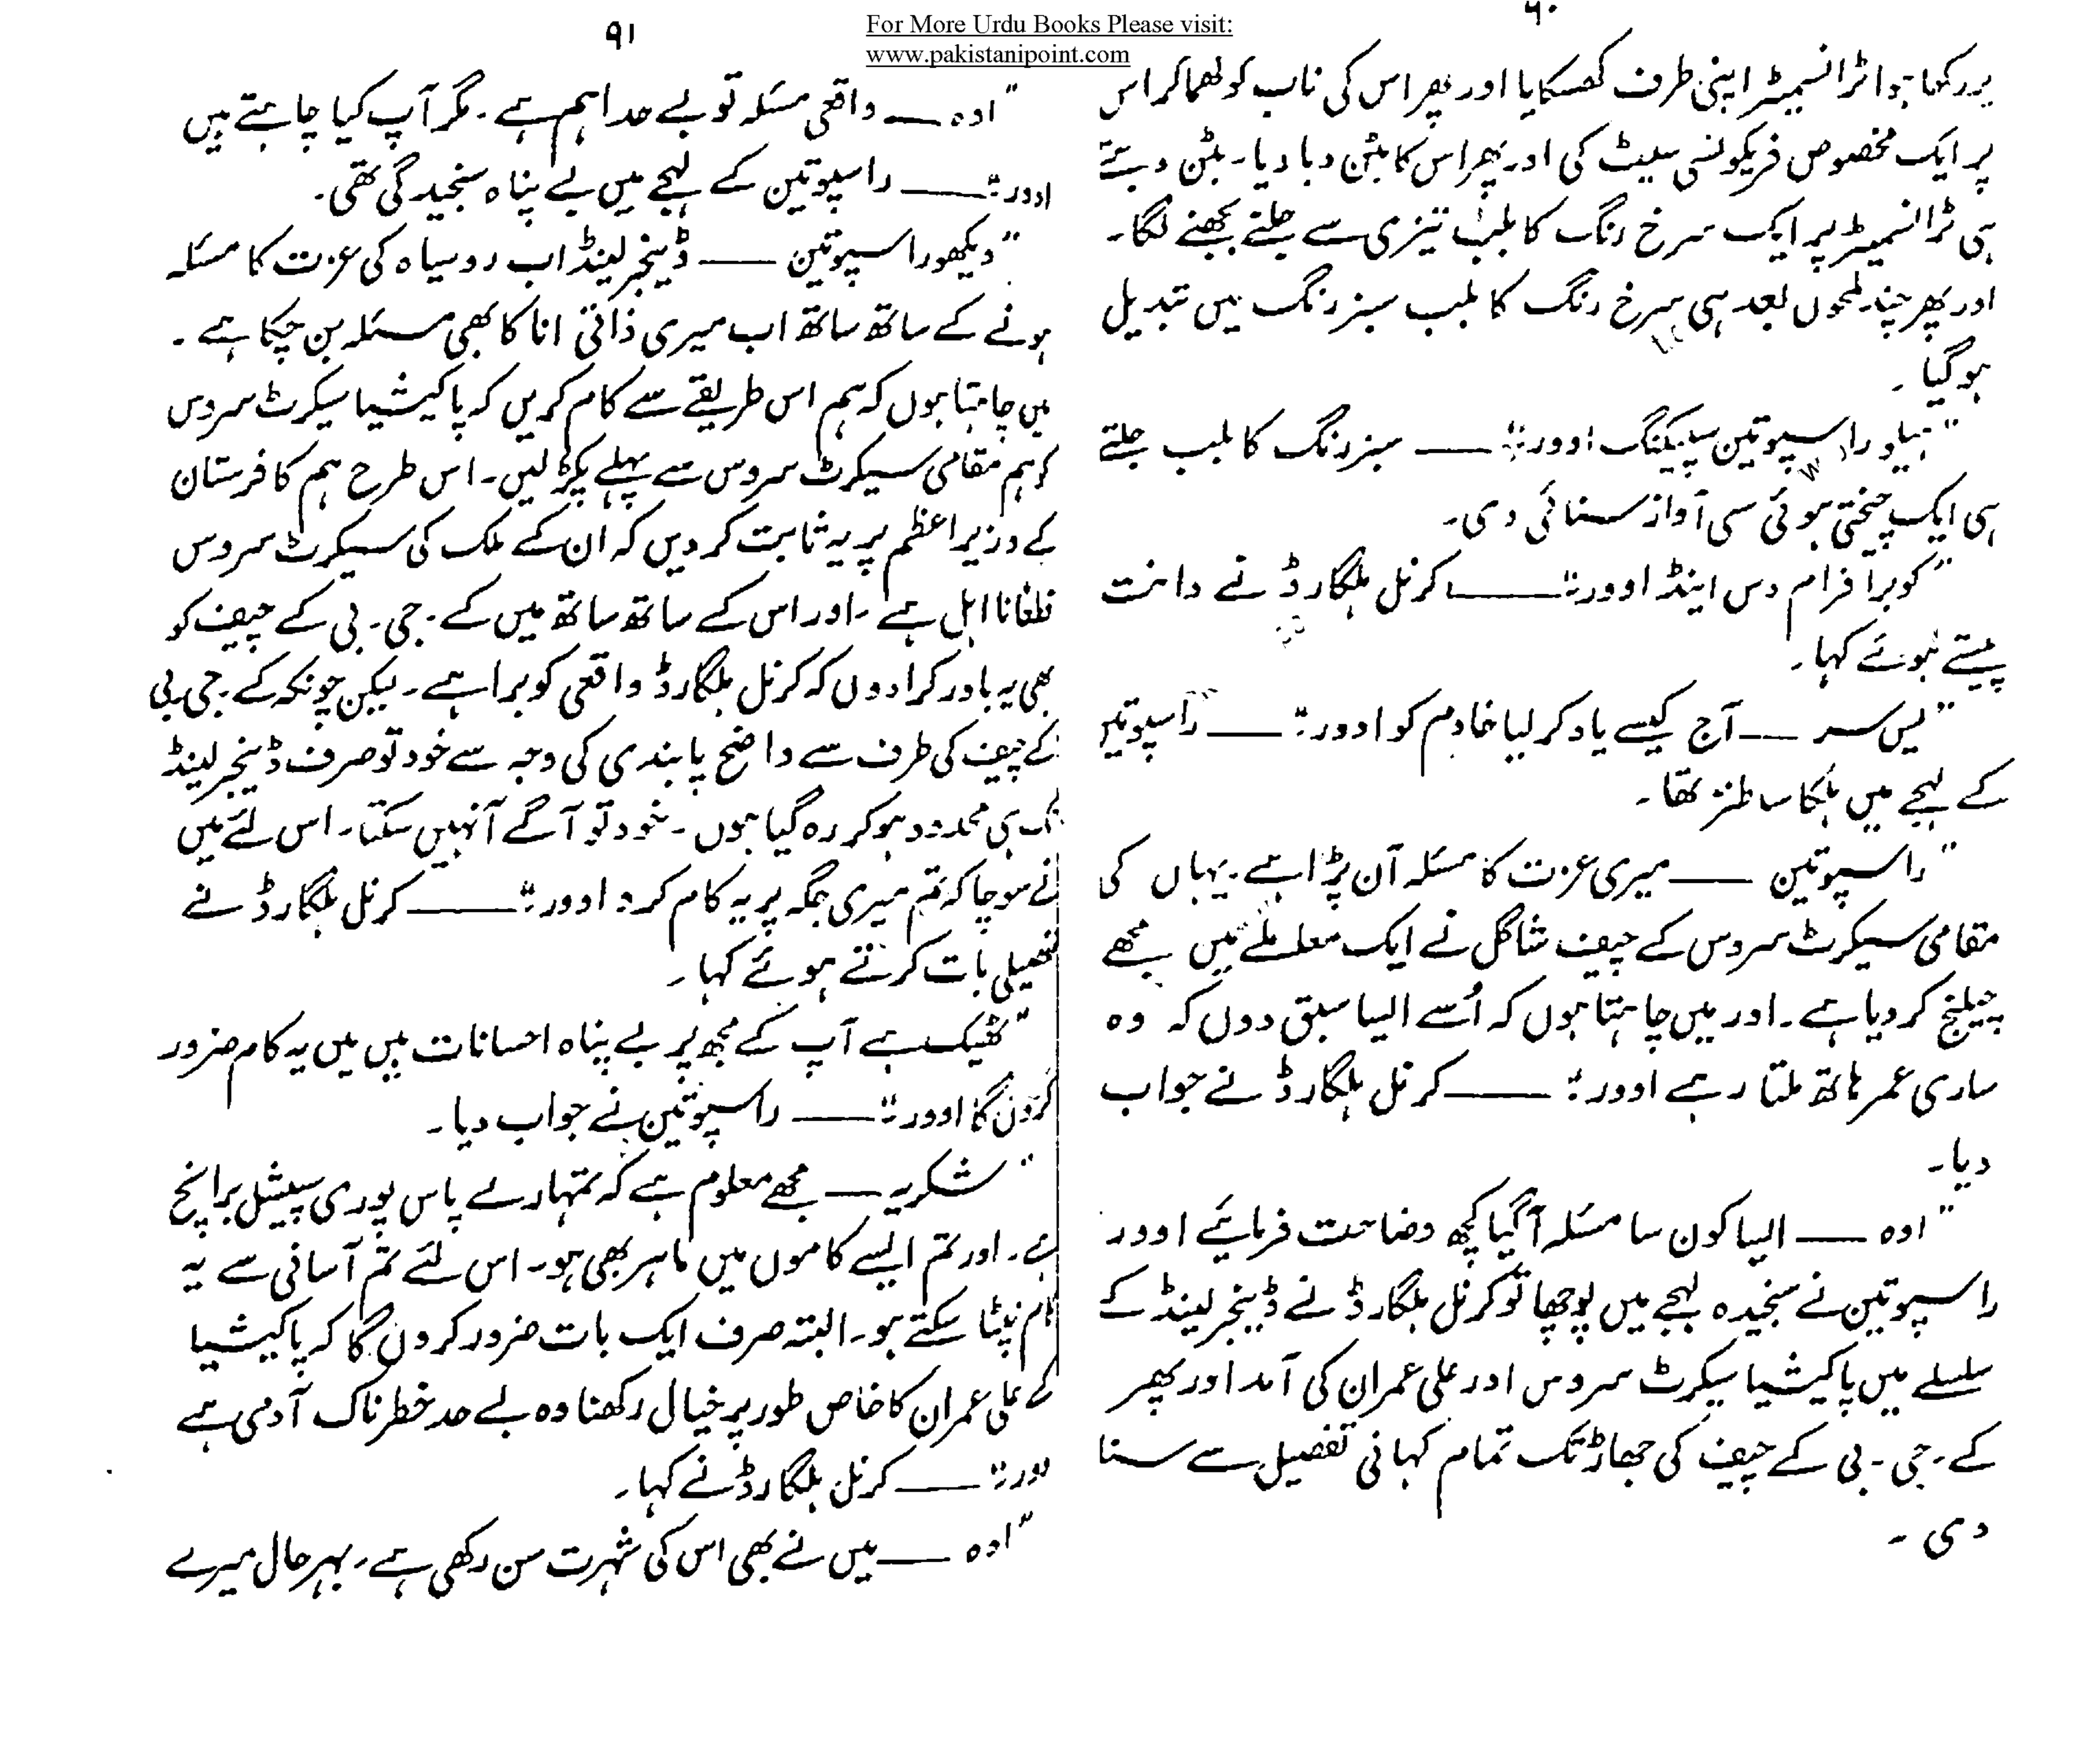 For More Urdu Books Please visit:
www.pakistanipoint.com
۹۰
پر رکھا ہوا ٹرانسمیٹر اپنی طرف کھسکایا اور پھر اس کی ناب کو گھما کر اس
پر ایک مخصوص فریکونسی سیٹ کی اور پھر اس کا بٹن دبا دیا۔ بٹن دبتے
ہی ٹرانسمیٹر پر ایک سرخ رنگ کا بلب تیزی سے جلنے بجھنے لگا۔
اور پھر چند لمحوں بعد ہی سرخ رنگ کا بلب سبز رنگ میں تبدیل
ہو گیا۔
"ہیلو راسپوتین سپیکنگ اوور"۔ —— سبز رنگ کا بلب جلتے
ہی ایک چیختی ہوئی سی آواز سنائی دی۔
"کوبرا فرام دس اینڈ اوور"۔ —— کرنل بلگارڈ نے دانت
پیستے ہوئے کہا۔
"یس سر —— آج کیسے یاد کر لیا خادم کو اوور"۔ —— راسپوتین
کے لہجے میں ہلکا سا طنز تھا۔
"راسپوتین —— میری عزت کا مسئلہ آن پڑا ہے۔ یہاں کی
مقامی سیکرٹ سروس کے چیف شاگل نے ایک معاملے میں مجھے
چیلنج کر دیا ہے۔ اور میں چاہتا ہوں کہ اُسے ایسا سبق دوں کہ وہ
ساری عمر ہاتھ ملتا رہے اوور"۔ —— کرنل بلگارڈ نے جواب
دیا۔
"اوہ —— ایسا کون سا مسئلہ آ گیا کچھ وضاحت فرمائیے اوور
راسپوتین نے سنجیدہ لہجے میں پوچھا تو کرنل بلگارڈ نے ڈینجر لینڈ کے
سلسلے میں پاکیشیا سیکرٹ سروس اور علی عمران کی آمد اور پھر
کے۔ جی۔ بی کے چیف کی جھاڑ تک تمام کہانی تفصیل سے سنا
دی۔
۹۱
"اوہ —— واقعی مسئلہ تو بے حد اہم ہے۔ مگر آپ کیا چاہتے ہیں
اوور"۔ —— راسپوتین کے لہجے میں بے پناہ سنجیدگی تھی۔
"دیکھو راسپوتین —— ڈینجر لینڈ اب روسیاہ کی عزت کا مسئلہ
ہونے کے ساتھ ساتھ اب میری ذاتی انا کا بھی مسئلہ بن چکا ہے۔
میں چاہتا ہوں کہ ہم اس طریقے سے کام کریں کہ پاکیشیا سیکرٹ سروس
کو ہم مقامی سیکرٹ سروس سے پہلے پکڑ لیں۔ اس طرح ہم کافرستان
کے وزیراعظم پر یہ ثابت کر دیں کہ ان کے ملک کی سیکرٹ سروس
قطعاً نااہل ہے۔ اور اس کے ساتھ ساتھ میں کے۔ جی۔ بی کے چیف کو
بھی یہ باور کرا دوں کہ کرنل بلگارڈ واقعی کوبرا ہے۔ لیکن چونکہ کے۔ جی۔ بی
کے چیف کی طرف سے واضح پابندی کی وجہ سے خود تو صرف ڈینجر لینڈ
تک ہی محدود ہو کر رہ گیا ہوں۔ خود تو آگے آ نہیں سکتا۔ اس لئے میں
نے سوچا کہ تم میری جگہ پر یہ کام کرو اوور"۔ —— کرنل بلگارڈ نے
تفصیلی بات کرتے ہوئے کہا۔
"ٹھیک ہے آپ کے مجھ پر بے پناہ احسانات ہیں میں یہ کام ضرور
کروں گا اوور"۔ —— راسپوتین نے جواب دیا۔
"شکریہ —— مجھے معلوم ہے کہ تمہارے پاس پوری سپیشل برانچ
ہے۔ اور تم ایسے کاموں میں ماہر بھی ہو۔ اس لئے تم آسانی سے یہ
کام نپٹا سکتے ہو۔ البتہ صرف ایک بات ضرور کروں گا کہ پاکیشیا
کے علی عمران کا خاص طور پر خیال رکھنا وہ بے حد خطرناک آدمی ہے
اوور"۔ —— کرنل بلگارڈ نے کہا۔
"اوہ —— میں نے بھی اس کی شہرت سن رکھی ہے۔ بہرحال میرے